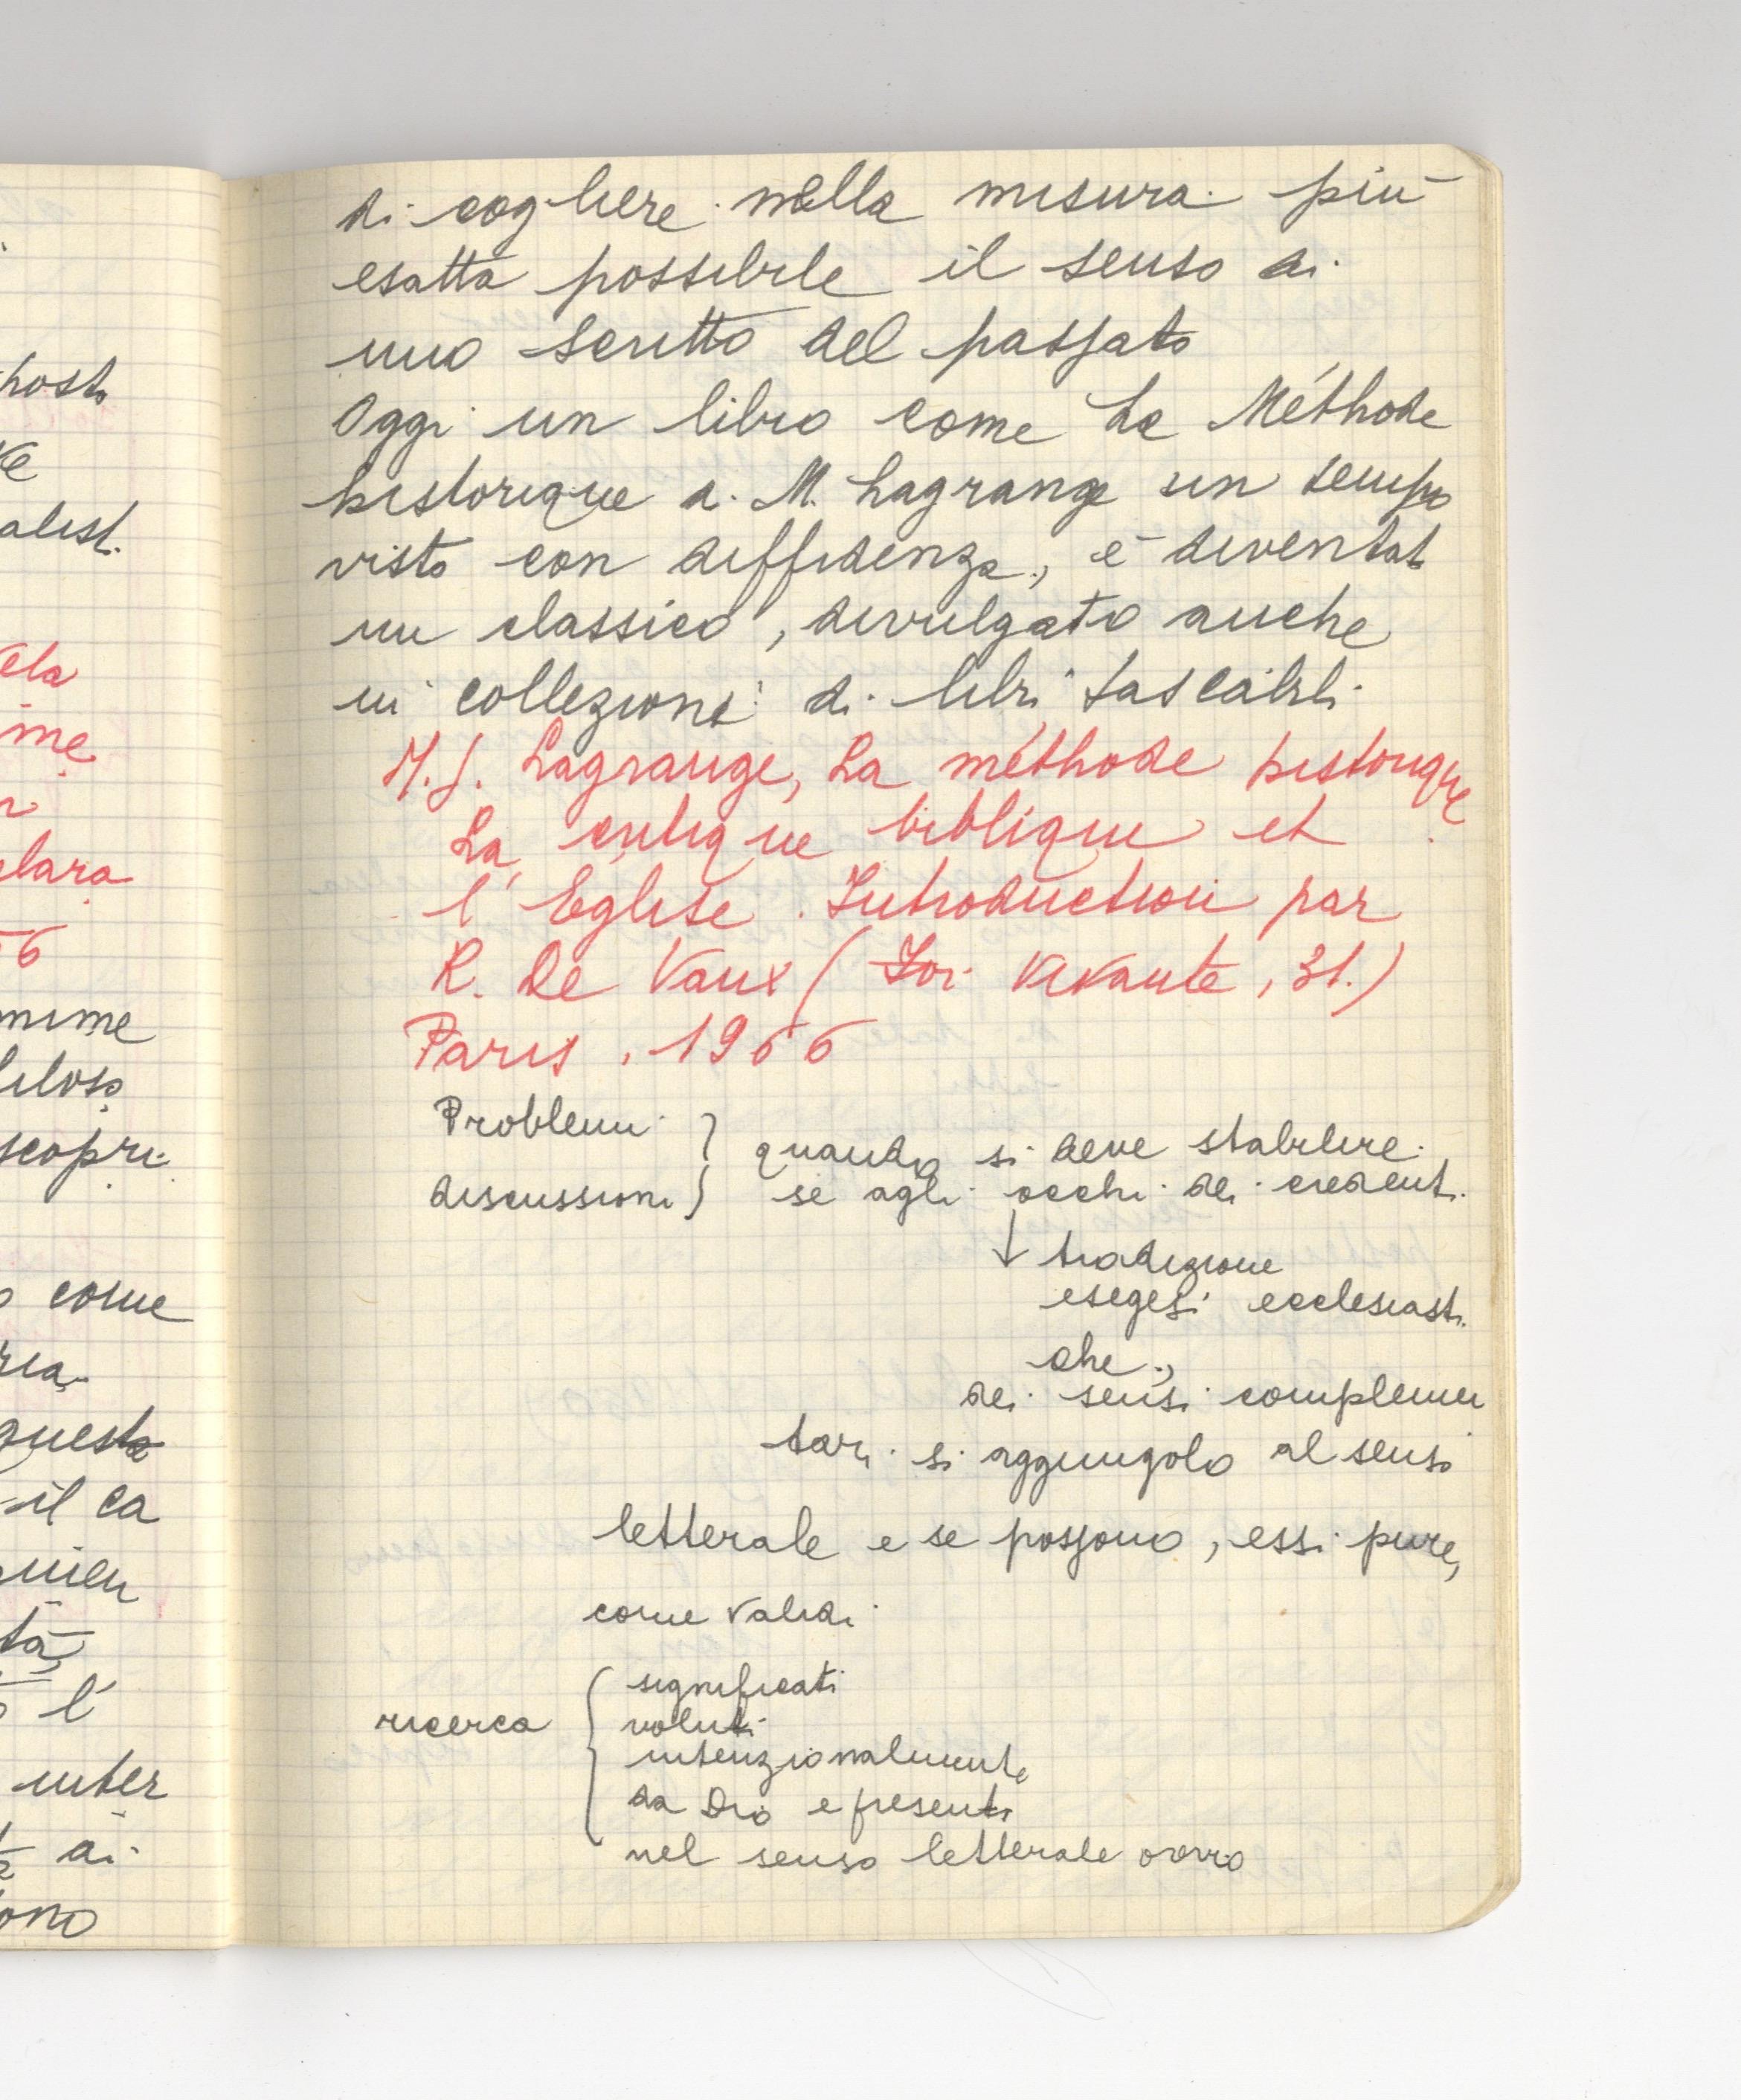 di cogliere nella misura più
esatta possibile il senso di
uno scritto del passato
Oggi un libro come La Méthode
historique di M. Lagrange un tempo
visto con diffidenza, è diventato
un classico, divulgato anche
in collezione di libri tascabili
M. J. Lagrange, La méthode historique
La critique biblique et
l'Eglise. Introduction par
R. De Vaux (Foi Vivante, 31.)
Paris, 1966
Problemi
discussioni
} quando si deve stabilire
se agli occhi dei credenti
↓ tradizione
esegesi ecclesiasti.
che,
dei sensi complemen
tari si aggiungolo al senso
letterale e se possono, essi pure,
come validi
ricerca
{ significati
voluti
intenzionalmente
da Dio e presenti
nel senso letterale ovvio
post
ve
alist.
ela
me
lara
56
mime
scopri
come
ria
questa
il ca
tà
l'
inter
di
ono